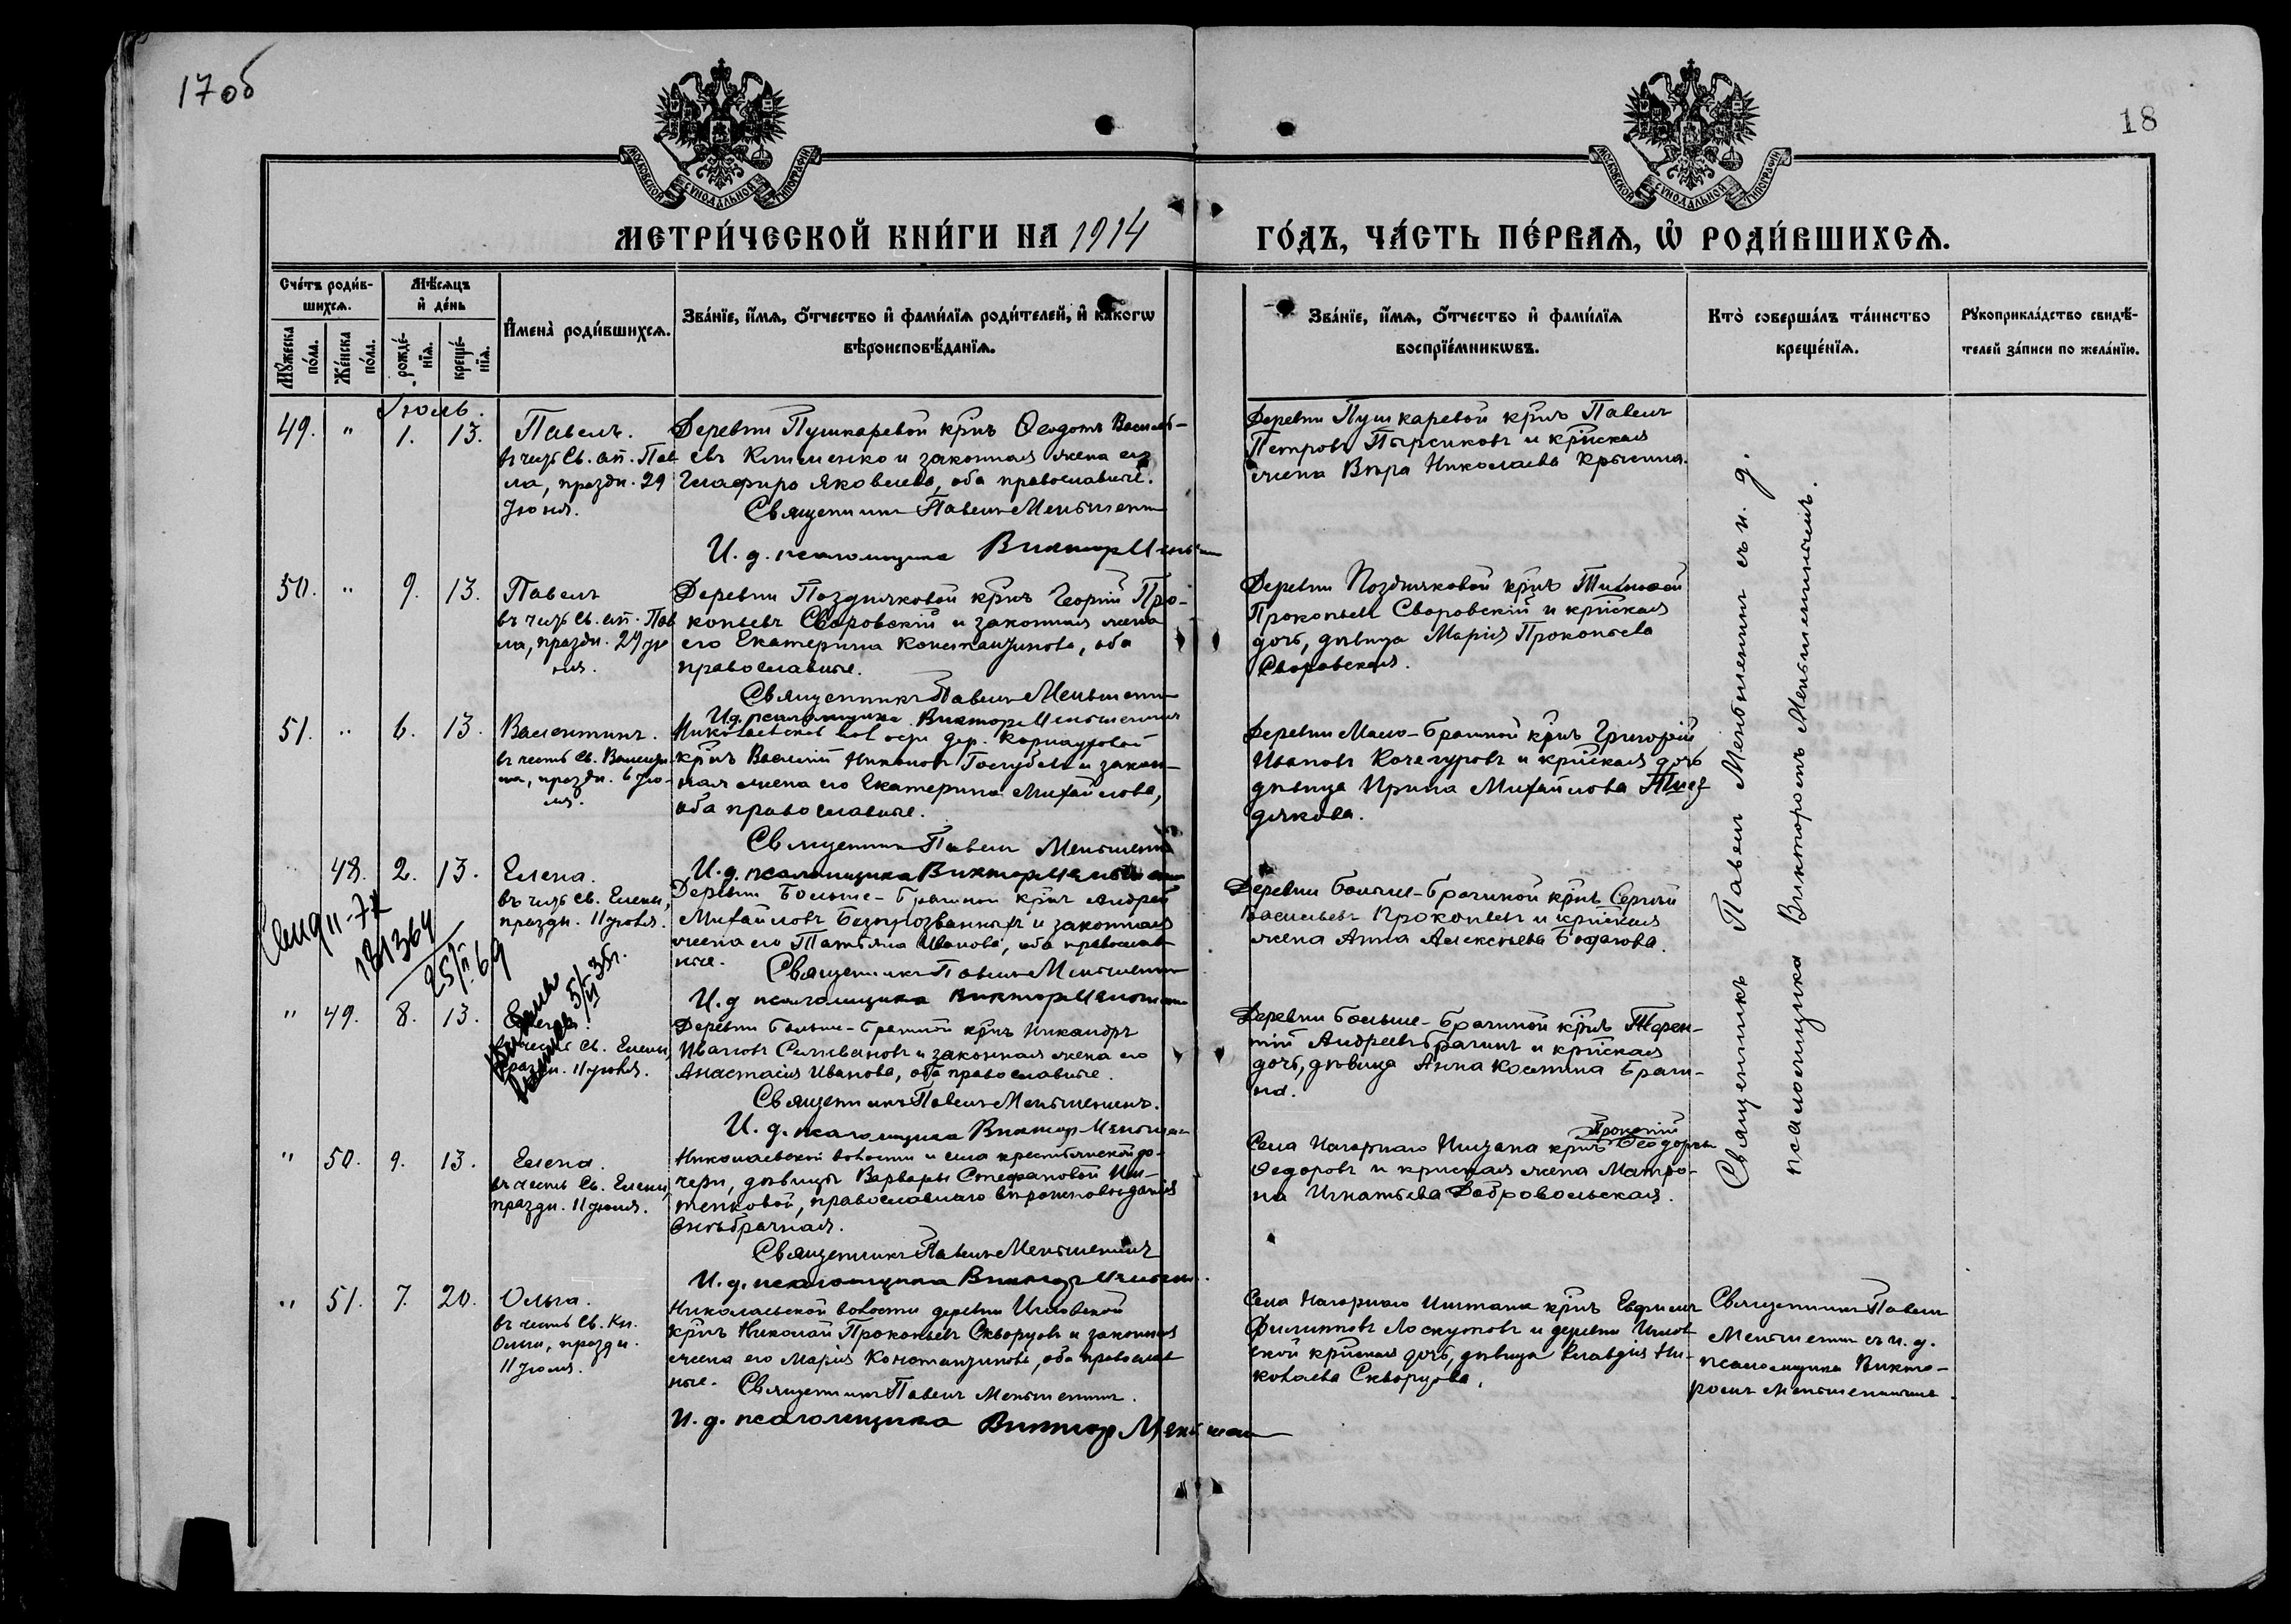 17об
18
МОСКОВСКОЙ СѴНОДАЛЬНОЙ ТИПОГРАФІИ
МОСКОВСКОЙ СѴНОДАЛЬНОЙ ТИПОГРАФІИ
МЕТРИ́ЧЕСКОЙ КНИ́ГИ НА 1914
ГО́ДЪ, ЧА́СТЬ ПЕ́РВАѦ, Ѡ҆ РОДИ́ВШИХСѦ.
Сче́тъ роди́в-
шихсѧ.
Мѣ́сѧцъ
и҆ де́нь
Мꙋ́жеска по́ла.
Же́нска по́ла.
рожде́-
нїѧ.
креще́-
нїѧ.
И҆мена̀ роди́вшихсѧ.
Зва́нїе, и҆́мѧ, ѻ҆́тчество и҆ фами́лїѧ роди́телей, и҆ какогѡ
вѣроисповѣ́данїѧ.
Зва́нїе, и҆́мѧ, ѻ҆́тчество и҆ фами́лїѧ
воспрїе́мникѡвъ.
Кто̀ соверша́лъ та́инство
креще́нїѧ.
Рꙋкоприкла́дство свидѣ́-
телей за́писи по жела́нїю.
Іюль.
49. " 1. 13. Павелъ.
въ честь Св. ап. Пав
ла, праздн. 29
Іюня.
Деревни Пушкаревой крнъ Ѳеодотъ Василь-
евъ Клименко и законная жена его
Глафира Яковлева, оба православные.
Священникъ Павелъ Меньшенинъ
И. д. псаломщика Викторъ Меньшенинъ
Деревни Пушкаревой крнъ Павелъ
Петровъ Пырсиковъ и крнская
жена Вѣра Николаева Крысина.
50. " 9. 13. Павелъ
въ честь Св. ап. Пав
ла, праздн. 29 Iю
ня.
Деревни Поздняковой крнъ Георгій Про-
копьевъ Сваровскій и законная жена
его Екатерина Константинова, оба
православные.
Священникъ Павелъ Меньшенинъ
И.д. псаломщика Викторъ Меньшенинъ
Деревни Поздняковой крнъ Тимофей
Прокопьевъ Сваровскій и крнская
дочь, дѣвица Марія Прокопьева
Сваровская.
51. " 6. 13. Валентинъ.
въ честь Св. Валенти
на, праздн. 6 Iю-
ля.
Николаевской вол дер. Карнауховой
крнъ Василій Никоновъ Голубевъ и закон-
ная жена его Екатерина Михайлова,
оба православные.
Священникъ Павелъ Меньшенинъ
И.д. псаломщика Викторъ Меньшенинъ
Деревни Мало-Брагиной крнъ Григорій
Ивановъ Кочегуровъ и крнская дочь
дѣвица Ирина Михайлова
дякова.
48. 2. 13. Елена.
въ честь Св. Елены,
праздн. 11 Iюля.
Деревни Больше-Брагиной крнъ Андрей
Михайловъ Безпрозванныхъ и законная
жена его Татьяна Иванова, оба православ
ные. Священникъ Павелъ Меньшенинъ
И.д псаломщика Викторъ Меньшенинъ
Деревни Больше-Брагиной крнъ Сергѣй
Васильевъ Прокопьевъ и крнская
жена Анна Алексѣева Богатова.
181364
25/II 69
5/VI 35г.
" 49. 8. 13. Елена.
въ честь Св. Елены,
праздн. 11 Iюля.
Деревни Больше-Брагиной крнъ Никандръ
Ивановъ Селивановъ и законная жена его
Анастасія Иванова, оба православные.
Священникъ Павелъ Меньшенинъ.
И. д. псаломщика Викторъ Меньшенинъ
Деревни Больше-Брагиной крнъ Терен-
тій Андреевъ Брагинъ и крнская
дочь, дѣвица Анна Костина Браги-
на.
" 50. 9. 13. Елена.
въ честь Св. Елены
праздн. 11 Iюля.
Николаевской волости и села крестьянской до-
чери, дѣвицы Варвары Стефановой Иш-
тенковой, православнаго вѣроисповѣданія
внѣбрачная.
Священникъ Павелъ Меньшенинъ
И.д. псаломщика Викторъ Меньшенинъ.
Прокопій
Села Нагорнаго Иштана крнъ Ѳеодоръ
Ѳедоровъ и крнская жена Матро-
на Игнатьева Добровольская.
" 51. 7. 20. Ольга.
въ честь Св. Кн.
Ольги, праздн.
11 Iюля.
Николаевской волости деревни Игловской
крнъ Николай Прокопьевъ Скворцовъ и законная
жена его Марія Константинова, оба православ
ные. Священникъ Павелъ Меньшенинъ.
И.д. псаломщика Викторъ Меньшенинъ
Села Нагорнаго Иштана крнъ Евфимъ
Филипповъ Лоскутовъ и деревни Иглов
ской крнская дочь, дѣвица Клавдія Ни-
колаева Скворцова.
Священникъ Павелъ
Меньшенинъ съ и.д.
псаломщика Викто-
ромъ Меньшенинымъ.
Священникъ Павелъ Меньшенинъ съ и. д.
псаломщика Викторомъ Меньшенинымъ.